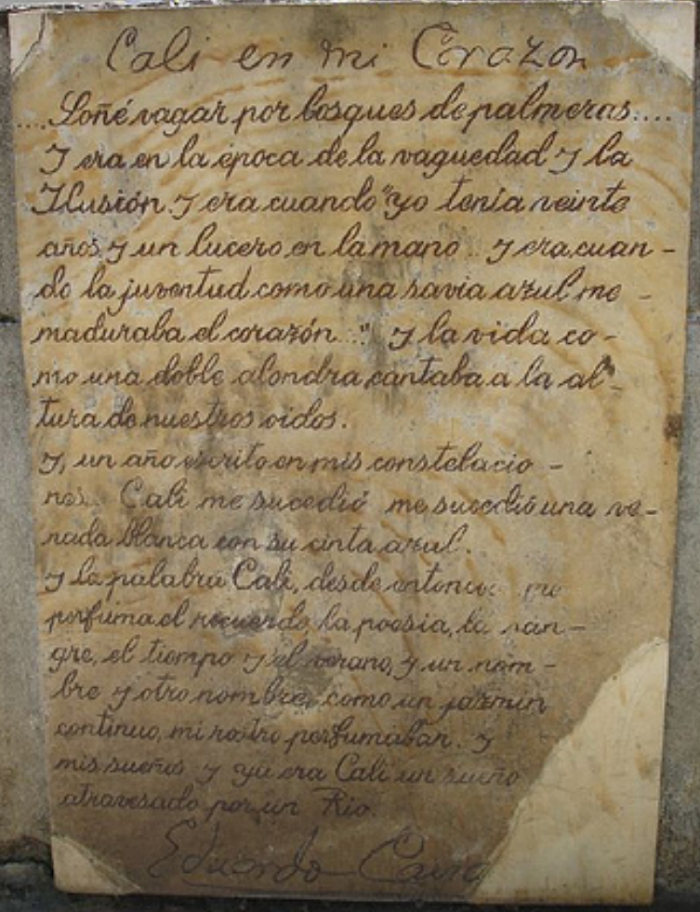 Cali en mi Corazon
....Soñé vagar por bosques de palmeras....
Y era en la época de la vaguedad y la
Ilusión. Y era cuando "yo tenía veinte
años y un lucero en la mano .. y era cuan-
do la juventud como una savia azul me -
maduraba el corazón..." y la vida co-
mo una doble alondra cantaba a la al-
tura de nuestros oidos.
Y, un año escrito en mis constelacio-
nes.. Cali me sucedió me sucedió una ve-
nada blanca con su cinta azul.
Y la palabra Cali, desde entonces me
perfuma el recuerdo, la poesia, la san-
gre, el tiempo y el verano, y un nom-
bre y otro nombre, como un jazmin
continuo, mi rostro perfumaban. y
mis sueños y ya era Cali un sueño
atravesado por un Rio.
Eduardo